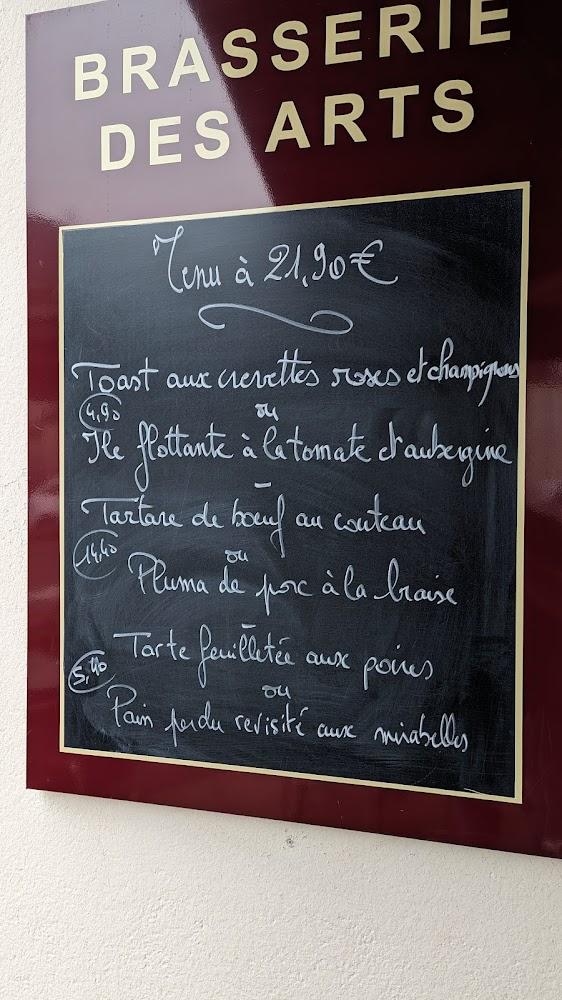 BRASSERIE
DES ARTS
Menu à 21,90€
Toast aux crevettes roses et champignons
4,90
ou
Ile flottante à la tomate et aubergine
Tartare de boeuf au couteau
14,40
ou
Pluma de porc à la braise
Tarte feuilletée aux poires
5,40
ou
Pain perdu revisité aux mirabelles